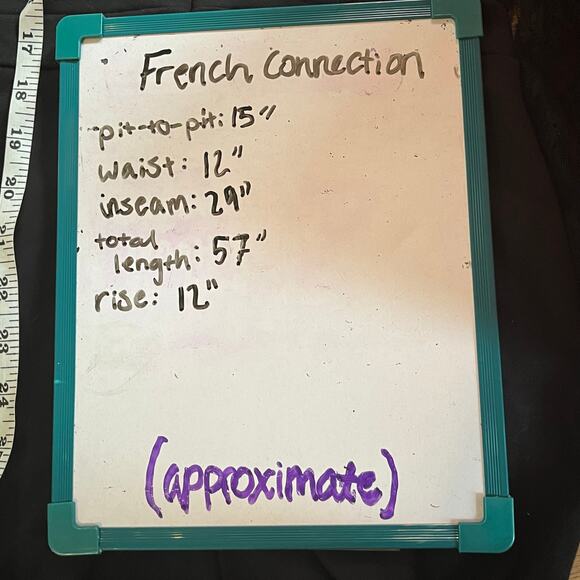 French Connection
pit-to-pit: 15"
waist: 12"
inseam: 29"
total
length: 57"
rise: 12"
(approximate)
17
18
19
20
21
22
23
24